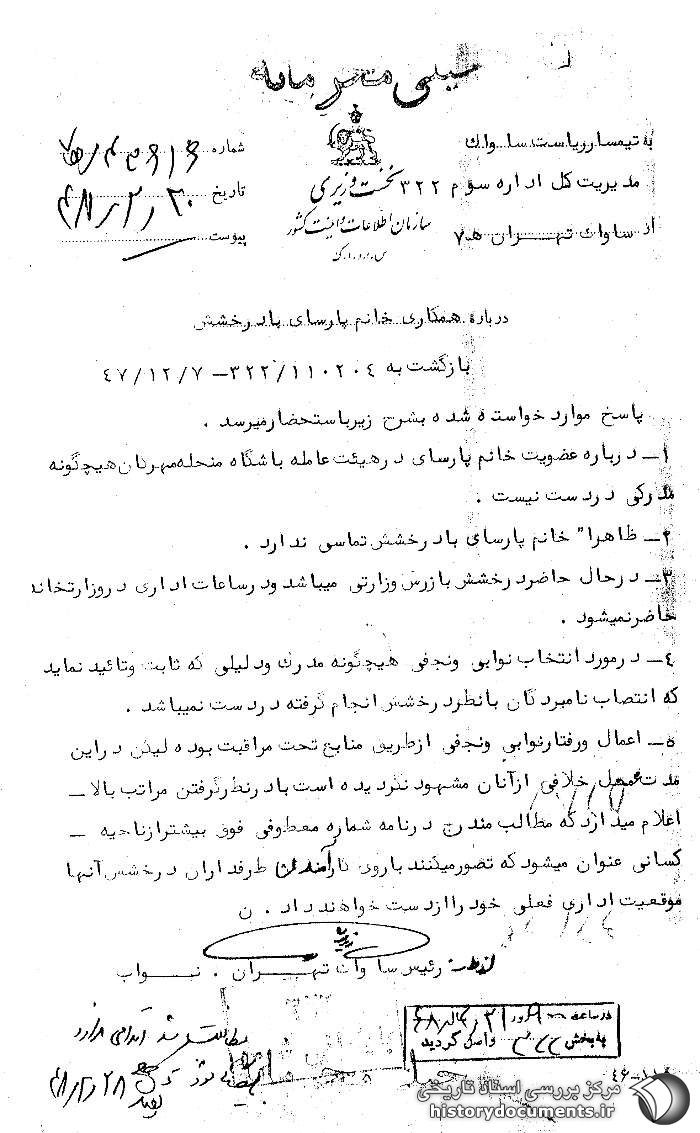 خیلی محرمانه
به تیمسار ریاست ساواک
مدیریت کل اداره سوم ۳۲۲
از ساواک تهران ه‍ ۷
نخست وزیری
سازمان اطلاعات و امنیت کشور
س.ا.و.ا.ک
شماره
تاریخ ۴۸٫۲٫۲۰
پیوست
درباره همکاری خانم پارسای با درخشش
بازگشت به ۳۲۲/۱۱۰۲۰۴ – ۴۷/۱۲/۷
پاسخ موارد خواسته شده بشرح زیر باستحضار میرسد .
۱ــ درباره عضویت خانم پارسای در هیئت عامله باشگاه منحله مهرگان هیچگونه
مدرکی در دست نیست .
۲ــ ظاهرا" خانم پارسای با درخشش تماسی ندارد .
۳ــ در حال حاضر درخشش بازرس وزارتی میباشد و در ساعات اداری در وزارتخانه
حاضر نمیشود .
٤ــ در مورد انتخاب نوابی و نجفی هیچگونه مدرک و دلیلی که ثابت و تائید نماید
که انتصاب نامبردگان بانظر درخشش انجام گرفته در دست نمیباشد .
۵ــ اعمال و رفتار نوابی و نجفی از طریق منابع تحت مراقبت بوده لیکن در این
مدت عمل خلافی از آنان مشهود نگردیده است با در نظر گرفتن مراتب بالا ــ
اعلام میدارد که مطالب مندرج در نامه شماره معطوفی فوق بیشتر از ناحیه ــ
کسانی عنوان میشود که تصور میکنند با روی کار آمدن طرفداران درخشش آنها
موقعیت اداری فعلی خود را از دست خواهند داد . ن
رئیس ساواک تهران . نواب
در ساعت روز
به بخش ۳۲۲ واصل گردید
مطالعه شد اقدامی ندارد
۴۸٫۲٫۲۸
مرکز بررسی اسناد تاریخی
historydocuments.ir